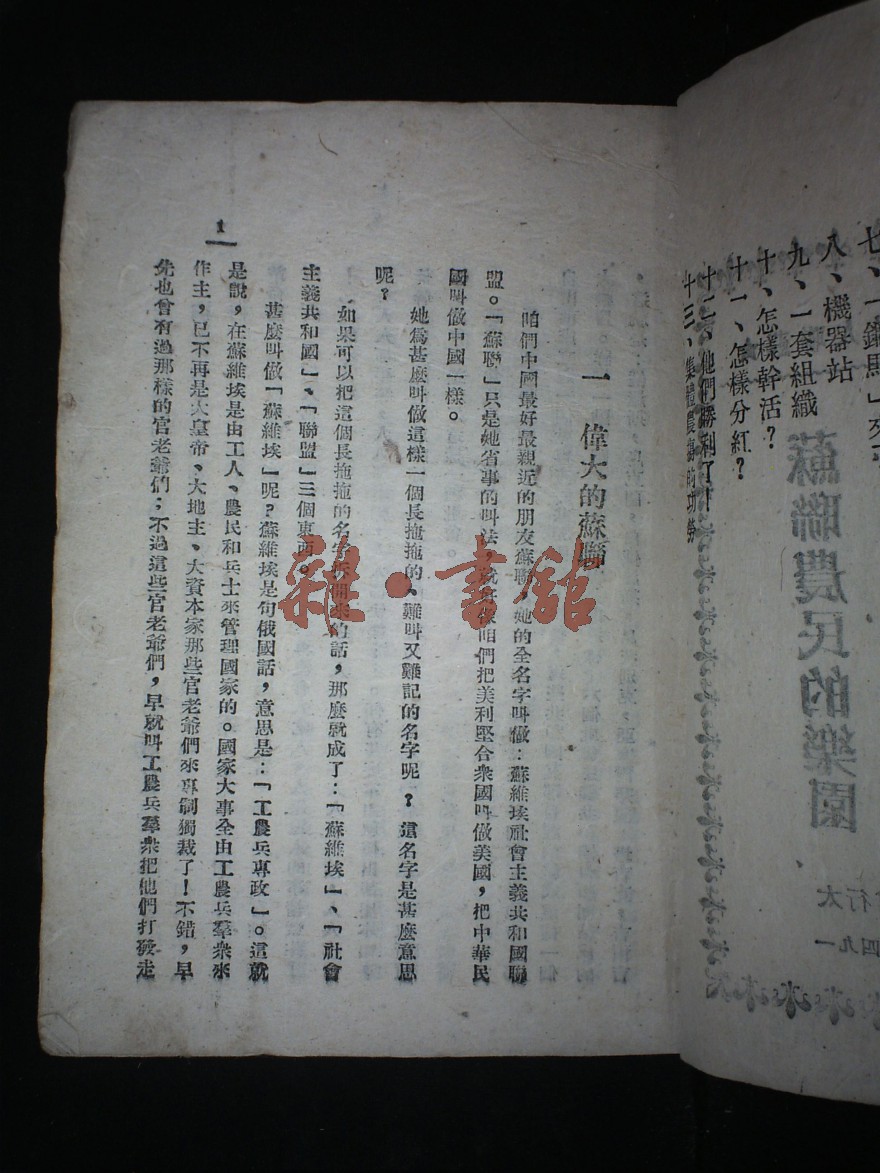 八、機器站
九、一套組織
十、怎樣幹活？
十一、怎樣分紅？
十二、他們勝利了！
十三、集體農莊的功勞
蘇聯農民的樂園
一 偉大的蘇聯
咱們中國最好最親近的朋友蘇聯，她的全名字叫做：蘇維埃社會主義共和國聯
盟。「蘇聯」只是她省事的叫法，就好像咱們把美利堅合衆國叫做美國，把中華民
國叫做中國一樣。
她爲甚麽叫做這樣一個長拖拖的、難叫又難記的名字呢？這名字是甚麽意思
呢？
如果可以把這個長拖拖的名字拆開來的話，那麽就成了：「蘇維埃」、「社會
主義共和國」、「聯盟」三個東西。
甚麽叫做「蘇維埃」呢？蘇維埃是句俄國話，意思是：「工農兵專政」。這就
是說，在蘇維埃是由工人、農民和兵士來管理國家的。國家大事全由工農兵羣衆來
作主，已不再是大皇帝、大地主、大資本家那些官老爺們來專制獨裁了！不錯，早
先也曾有過那樣的官老爺們；不過這些官老爺們，早就叫工農兵羣衆把他們打發走
1
雜·書館